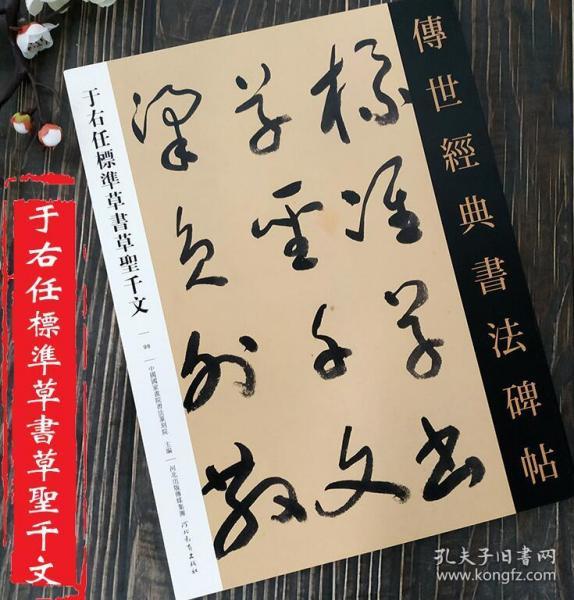 傳世經典書法碑帖
標準草書
草聖千文
梁員外散
于右任標準草書草聖千文
中國國家畫院書法篆刻院 主編
河北出版傳媒集團 河北教育出版社
于右任標準草書草聖千文
孔夫子旧书网
www.kongfz.com